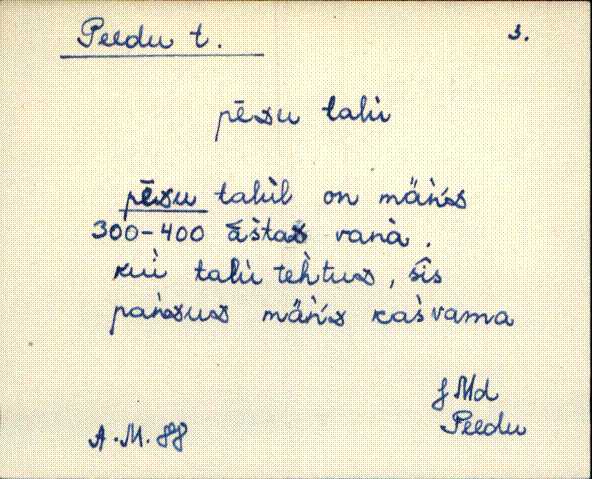 Peedu t. 3.
pēᴅu talù
pēᴅu talùl on mäǹ's
300-400 āštaᴅ vanà.
kuì talù teh̀tus, sîs
pańᴅus mäǹ's kaśvama
J Md
Peedu
A.M. 88